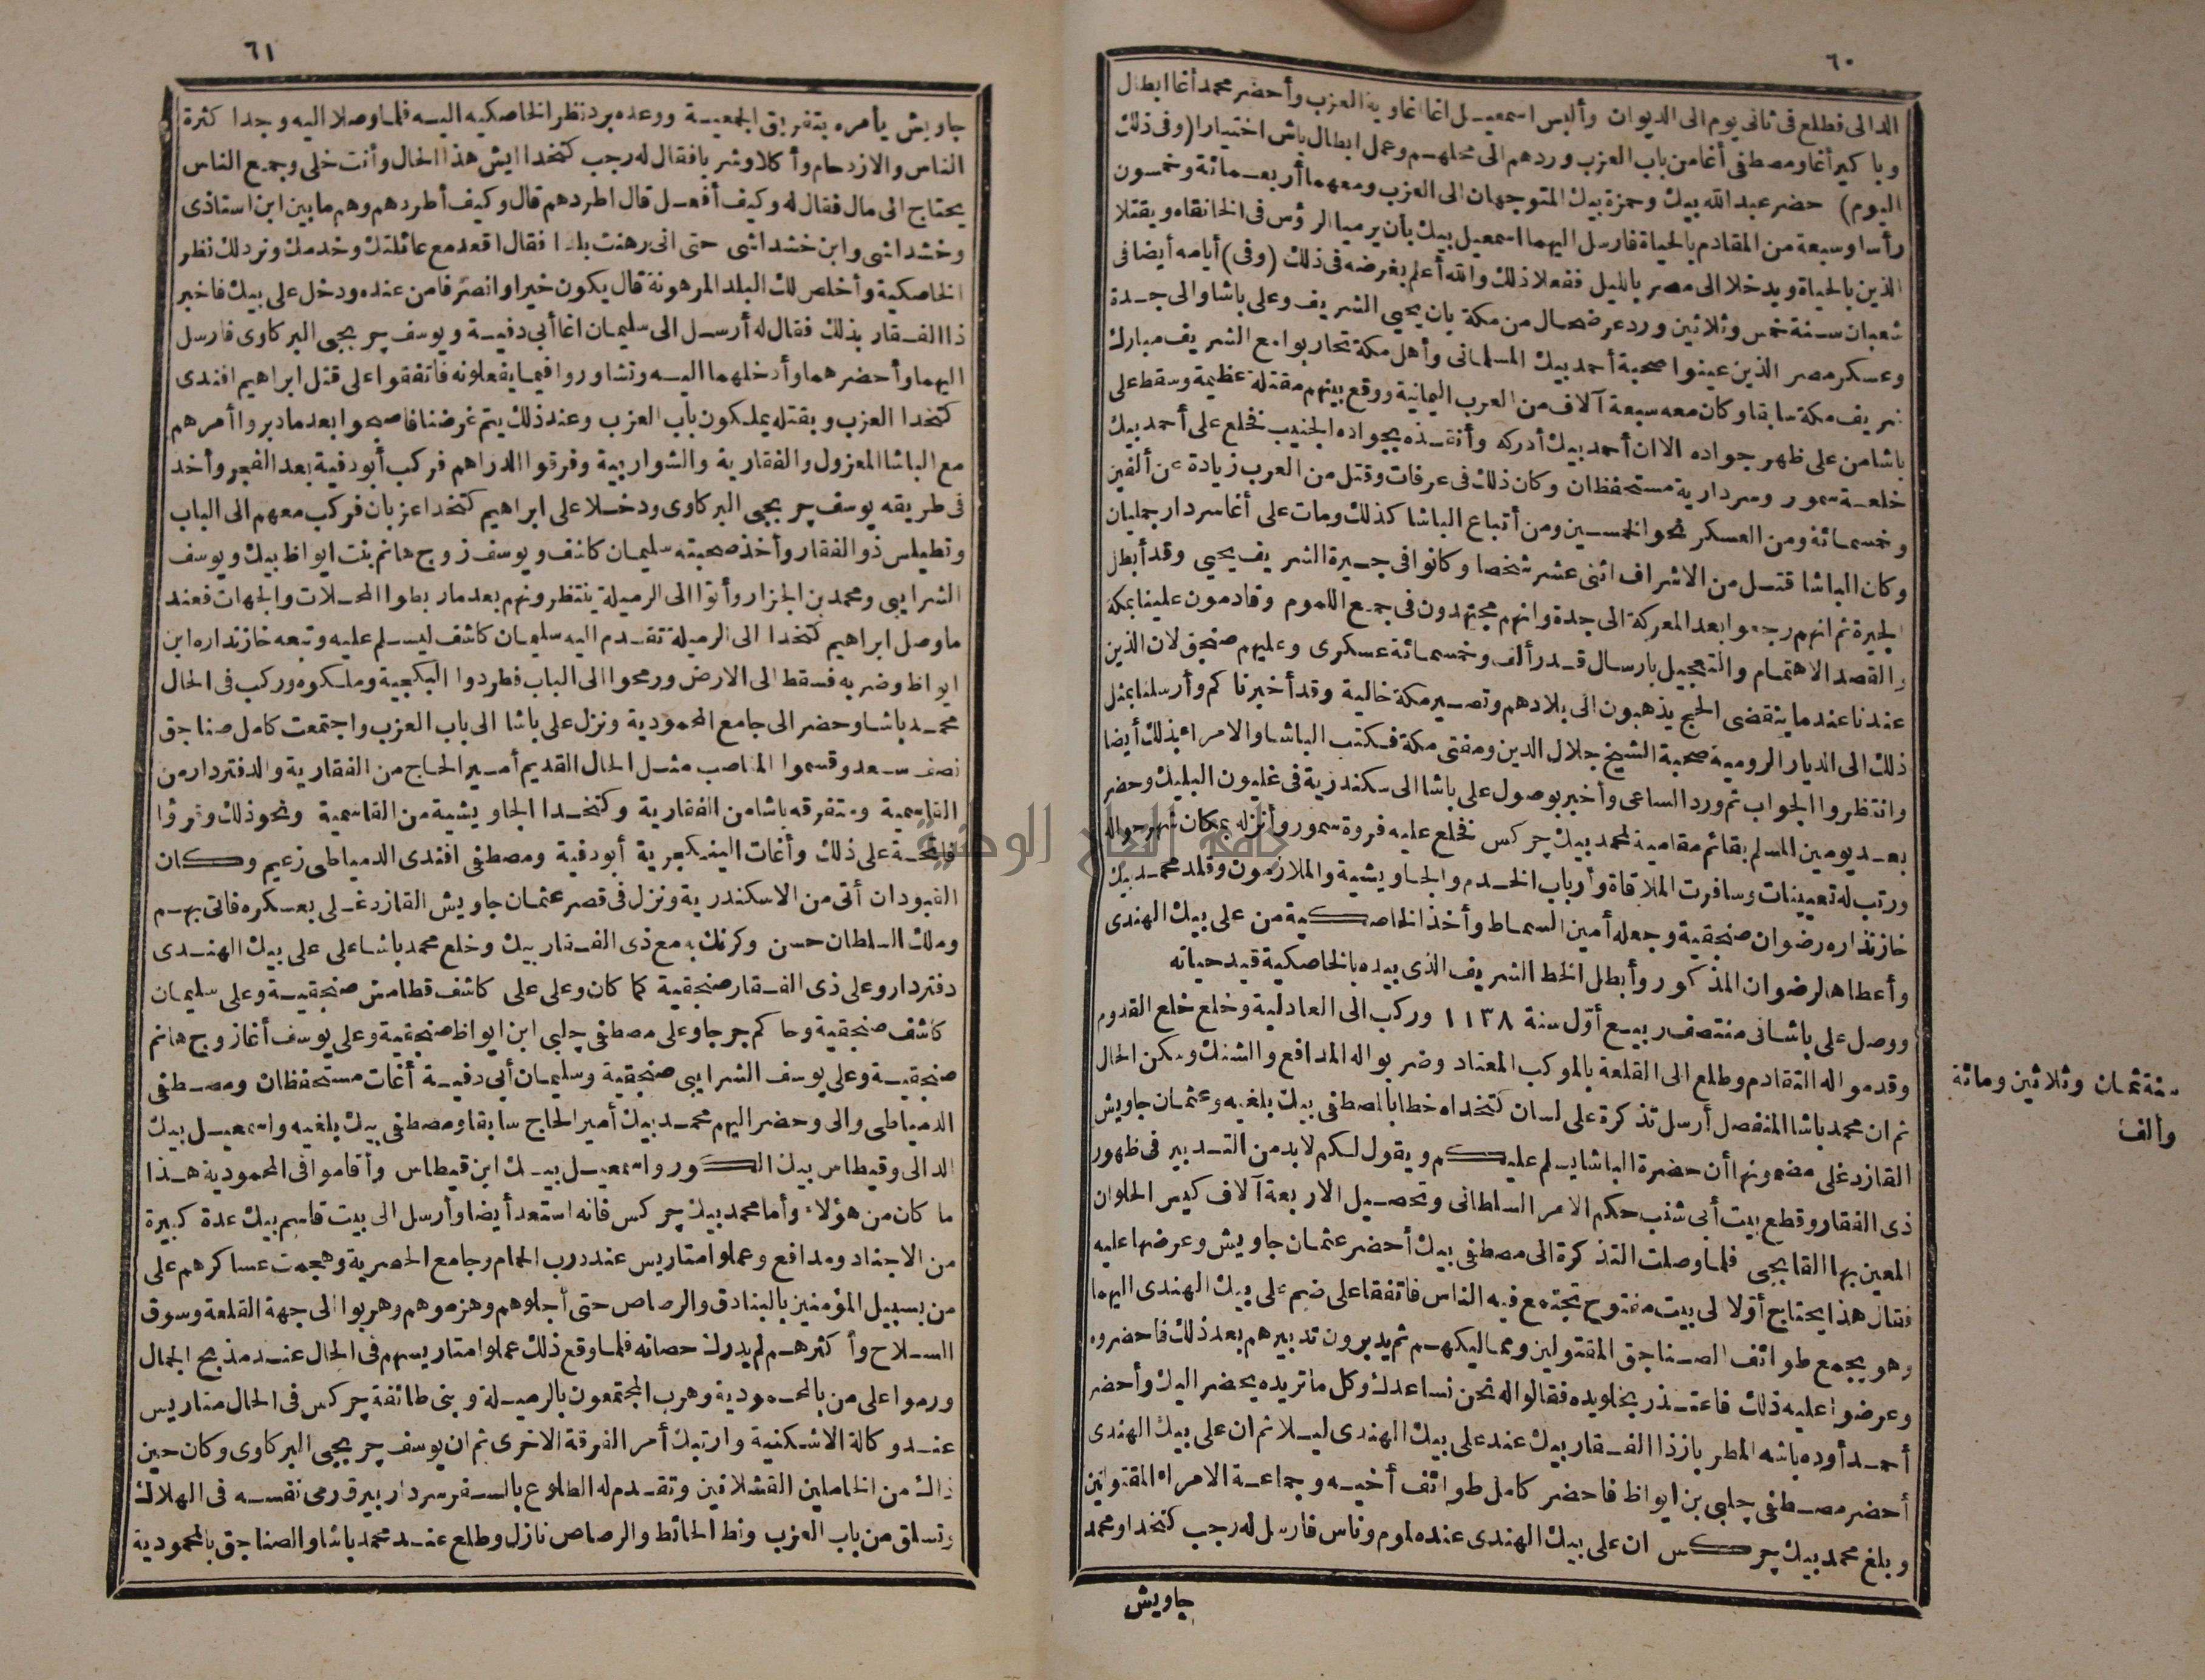 ٦٠
الدالى فطلع فى ثانى يوم الى الديوان وألبس اسمعيل اغا اغاوية العزب وأحضر محمد أغا ابطال
وباكير أغا ومصطفى أغا من باب العزب وردهم الى محلهم وعمل ابطال باش اختيارا (وفى ذلك
اليوم) حضر عبد الله بيك وحمزة بيك المتوجهان الى العزب ومعهما أربعمائة وخمسون
رأسا وسبعة من المقادم بالحياة فارسل اليهما اسمعيل بيك بأن يرميا الرؤس فى الخانقاه ويقتلا
الذين بالحياة ويدخلا الى مصر بالليل ففعلا ذلك والله أعلم بغرضه فى ذلك (وفى) أيامه أيضا فى
شعبان سنة خمس وثلاثين ورد عرضحال من مكة بان يحيى الشريف وعلى باشا والى جدة
وعسكر مصر الذين عينوا صحبة أحمد بيك المسلمانى وأهل مكة تحاربوا مع الشريف مبارك
شريف مكة سابقا وكان معه سبعة آلاف من العرب اليمانية ووقع بينهم مقتلة عظيمة وسقط على
باشا من على ظهر جواده الا ان أحمد بيك أدركه وأنقذه بجواده الجنيب فخلع على أحمد بيك
خلعة سمور وسردارية مستحفظان وكان ذلك فى عرفات وقتل من العرب زيادة عن ألفين
وخمسمائة ومن العسكر نحو الخمسين ومن أتباع الباشا كذلك ومات على أغا سردار جمليان
وكان الباشا قتل من الاشراف اثنى عشر شخصا وكانوا فى جيرة الشريف يحيى وقد أبطل
الجيرة ثم انهم رجعوا بعد المعركة الى جدة وانهم مجتهدون فى جمع اللموم وقادمون علينا بمكة
والقصد الاهتمام والتعجيل بارسال قدر ألف وخمسمائة عسكرى وعليهم صنجق لان الذين
عندنا عند ما ينقضى الحج يذهبون الى بلادهم وتصير مكة خالية وقد أخبرناكم وأرسلنا بمثل
ذلك الى الديار الرومية صحبة الشيخ جلال الدين ومفتى مكة فكتب الباشا والامراء بذلك أيضا
وانتظروا الجواب ثم ورد الساعى وأخبر بوصول على باشا الى سكندرية فى غليون البليك وحضر
بعد يومين المسلم بقائم مقامية لمحمد بيك چركس فخلع عليه فروة سمور وأنزله بمكان شهر حواله
ورتب له تعيينات وسافرت الملاقاة وأرباب الخدم والجاويشية والملازمون وقلد محمد بيك
خازنداره رضوان صنجقية وجعله أمين السماط وأخذ الخاصكية من على بيك الهندى
وأعطاها لرضوان المذكور وأبطل الخط الشريف الذى بيده بالخاصكية قيد حياته
ووصل على باشا فى منتصف ربيع أول سنة ١١٣٨ وركب الى العادلية وخلع خلع القدوم
وقدموا له التقادم وطلع الى القلعة بالموكب المعتاد وضربوا له المدافع والشنك وسكن الحال
ثم ان محمد باشا المنفصل أرسل تذكرة على لسان كتخداه خطابا لمصطفى بيك بلغيه وعثمان جاويش
القازدغلى مضمونها أن حضرة الباشا يسلم عليكم ويقول لكم لا بد من التدبير فى ظهور
ذى الفقار وقطع بيت أبى شنب حكم الامر السلطانى وتحصيل الاربعة آلاف كيس الحلوان
المعين بها القابجى فلما وصلت التذكرة الى مصطفى بيك أحضر عثمان جاويش وعرضها عليه
فقال هذا يحتاج أولا الى بيت مفتوح تجتمع فيه الناس فاتفقا على ضم على بيك الهندى اليهما
وهو يجمع طوائف الصناجق المقتولين ومماليكهم ثم يدبرون تدبيرهم بعد ذلك فاحضروه
وعرضوا عليه ذلك فاعتذر بخلو يده فقالوا له نحن نساعدك وكل ما تريده يحضر اليك وأحضر
أحمد أوده باشه المطرباز ذا الفقار بيك عند على بيك الهندى ليلا ثم ان على بيك الهندى
أحضر مصطفى چلبى بن ايواظ فاحضر كامل طوائف أخيه وجماعة الامراء المقتولين
وبلغ محمد بيك چركس ان على بيك الهندى عنده لموم وناس فارسل له رجب كتخدا ومحمد
جاويش
سنة ثمان وثلاثين ومائة
وألف
٦١
جاويش يأمره بتفريق الجمعية ووعده برد نظر الخاصكيه اليه فلما وصلا اليه وجدا كثرة
الناس والازدحام وأكلا وشربا فقال له رجب كتخدا ايش هذا الحال وأنت خلى وجمع الناس
يحتاج الى مال فقال له وكيف أفعل قال اطردهم قال وكيف أطردهم وهم ما بين ابن استاذى
وخشداشى وابن خشداشى حتى انى رهنت بلدا فقال اقعد مع عائلتك وخدمك ونرد لك نظر
الخاصكية وأخلص لك البلد المرهونة قال يكون خيرا وانصرفا من عنده ودخل على بيك فاخبر
ذا الفقار بذلك فقال له أرسل الى سليمان اغا أبى دفية ويوسف چربجى البركاوى فارسل
اليهما وأحضرهما وأدخلهما اليه وتشاوروا فيما يفعلونه فاتفقوا على قتل ابراهيم افندى
كتخدا العزب وبقتله يملكون باب العزب وعند ذلك يتم غرضنا فاصبحوا بعد ما دبروا أمرهم
مع الباشا المعزول والفقارية والشواربية وفرقوا الدراهم فركب أبو دفية بعد الفجر وأخذ
فى طريقه يوسف چربجى البركاوى ودخلا على ابراهيم كتخدا عزبان فركب معهم الى الباب
وتطيلس ذو الفقار وأخذ صحبته سليمان كاشف ويوسف زوج هانم بنت ايواظ بيك ويوسف
الشرايبى ومحمد بن الجزار وأتوا الى الرميلة ينتظرونهم بعد ما ربطوا المحلات والجهات فعند
ما وصل ابراهيم كتخدا الى الرميلة تقدم اليه سليمان كاشف ليسلم عليه وتبعه خازنداره ابن
ايواظ وضربه فسقط الى الارض ورمحوا الى الباب فطردوا البكجية وملكوه وركب فى الحال
محمد باشا وحضر الى جامع المحمودية ونزل على باشا الى باب العزب واجتمعت كامل صناجق
نصف سعد وقسموا المناصب مثل الحال القديم أمير الحاج من الفقارية والدفتردار من
القاسمية ومتفرقه باشا من الفقارية وكتخدا الجاويشية من القاسمية ونحو ذلك وقرؤا
فاتحة على ذلك وأغات الينكجرية أبو دفية ومصطفى افندى الدمياطى زعيم وكان
القبودان أتى من الاسكندرية ونزل فى قصر عثمان جاويش القازدغلى بعسكره فاتى بهم
وملك السلطان حسن وكرنك به مع ذى الفقار بيك وخلع محمد باشا على على بيك الهندى
دفتردار وعلى ذى الفقار صنجقية كما كان وعلى على كاشف قطامش صنجقية وعلى سليمان
كاشف صنجقية وحاكم جرجا وعلى مصطفى چلبى ابن ايواظ صنجقية وعلى يوسف أغا زوج هانم
صنجقية وعلى يوسف الشرايبى صنجقية وسليمان أبى دفية أغات مستحفظان ومصطفى
الدمياطى والى وحضر اليهم محمد بيك أمير الحاج سابقا ومصطفى بيك بلغيه واسمعيل بيك
الدالى وقيطاس بيك الكور واسمعيل بيك ابن قيطاس وأقاموا فى المحمودية هذا
ما كان من هؤلاء وأما محمد بيك چركس فانه استعد أيضا وأرسل الى بيت قاسم بيك عدة كبيرة
من الاجناد ومدافع وعملوا متاريس عند درب الحمام وجامع الحصرية وهجمت عساكرهم على
من بسبيل المؤمنين بالبنادق والرصاص حتى أجلوهم وهزموهم وهربوا الى جهة القلعة وسوق
السلاح وأكثرهم لم يدرك حصانه فلما وقع ذلك عملوا متاريسهم فى الحال عند مذبح الجمال
ورموا على من بالمحمودية وهرب المجتمعون بالرميلة وبنى طائفة چركس فى الحال متاريس
عند وكالة الاشكنية وارتبك أمر الفرقة الاخرى ثم ان يوسف چربجى البركاوى وكان حين
ذاك من الخاملين القشلانين وتقدم له الطلوع بالسفر سردار بيرق رمى نفسه فى الهلاك
وتسلق من باب العزب ونط الحائط والرصاص نازل وطلع عند محمد باشا والصناجق بالمحمودية
جامعة النجاح الوطنية